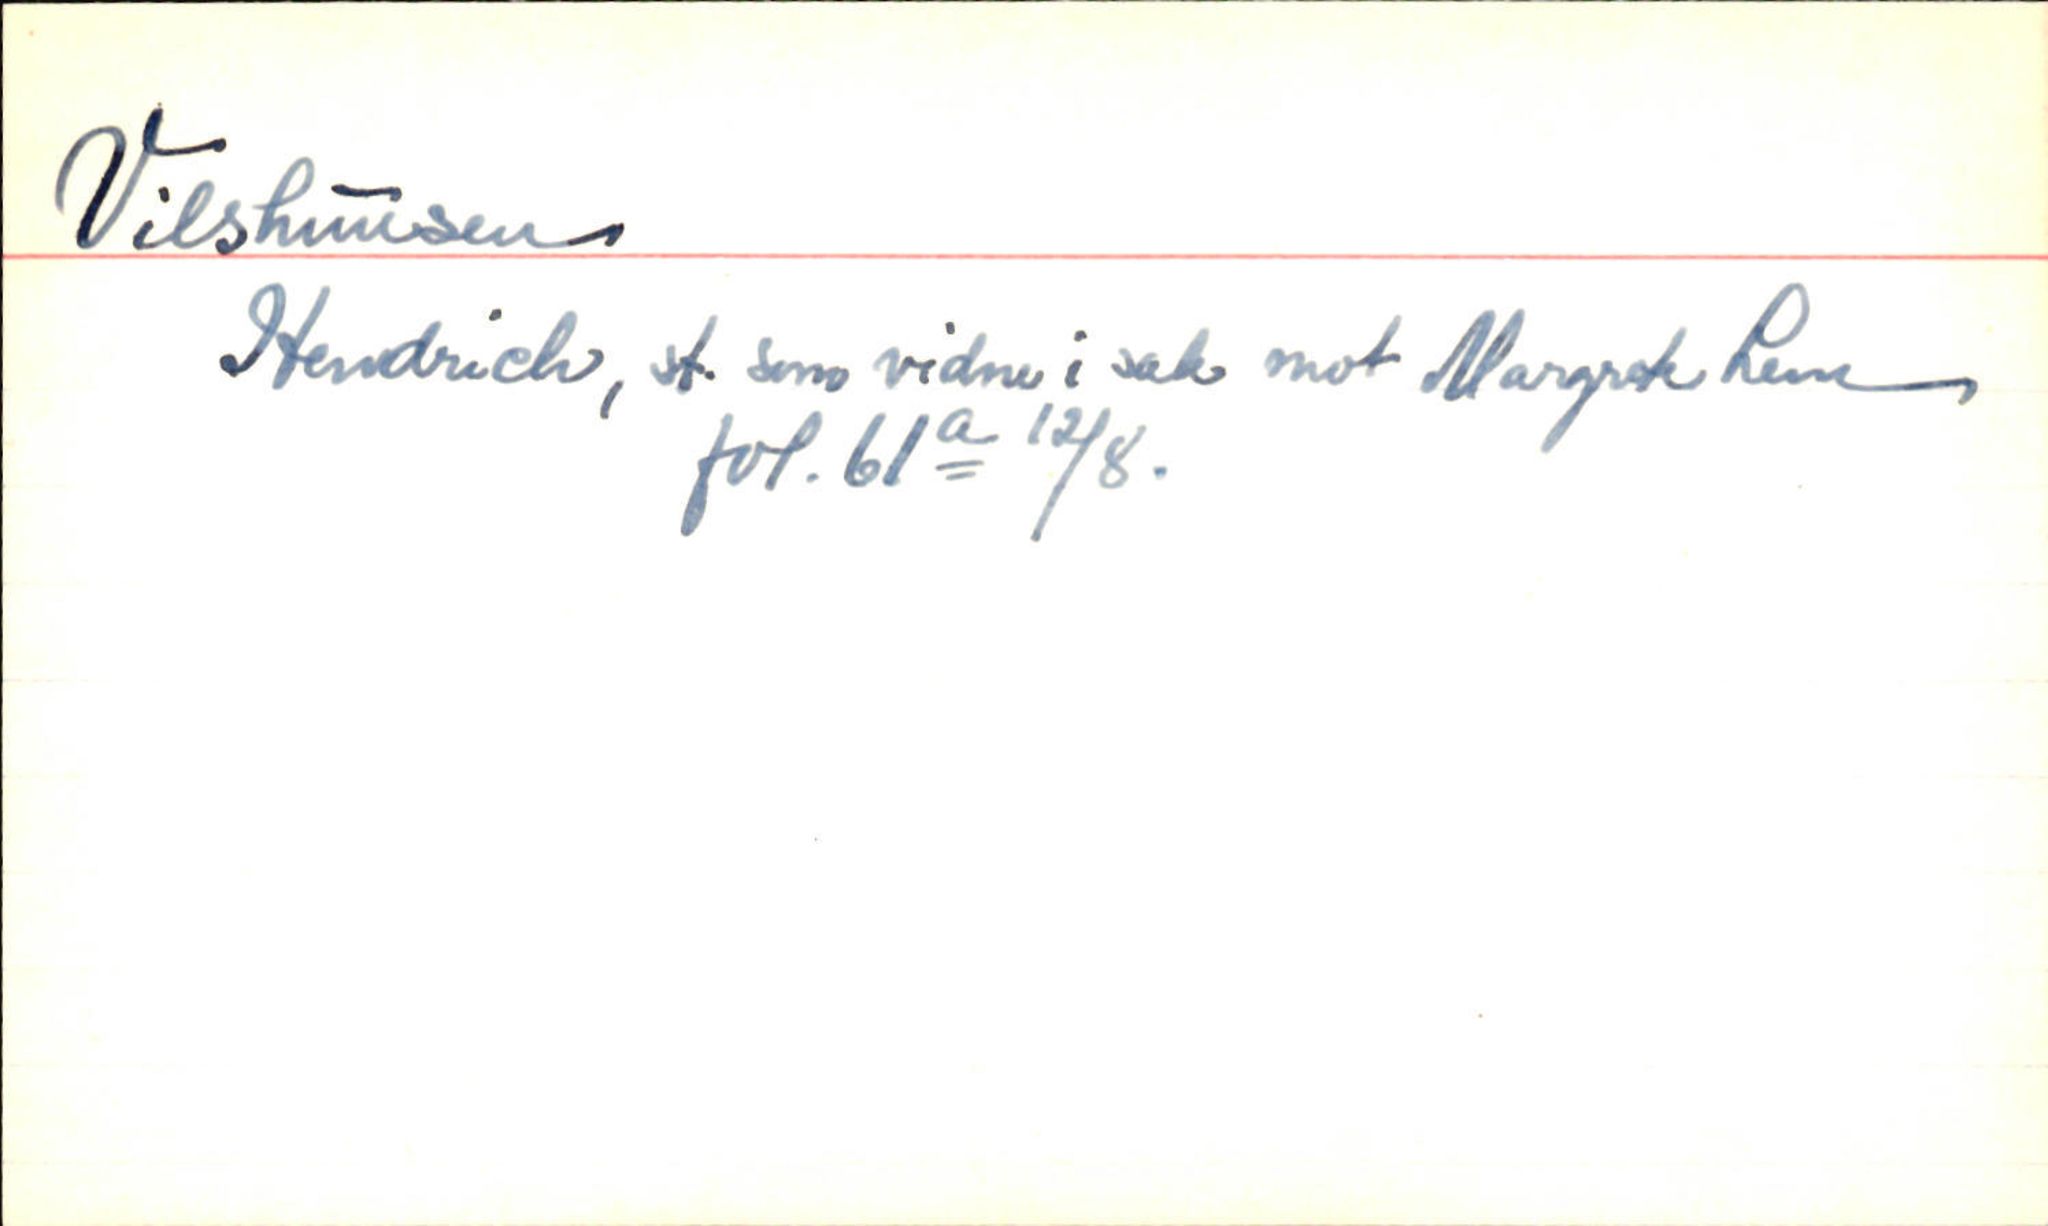 Vilshuusen
Hendrich, st. som vidne i sak mot Margrete Lem
fol. 61a 12/8.